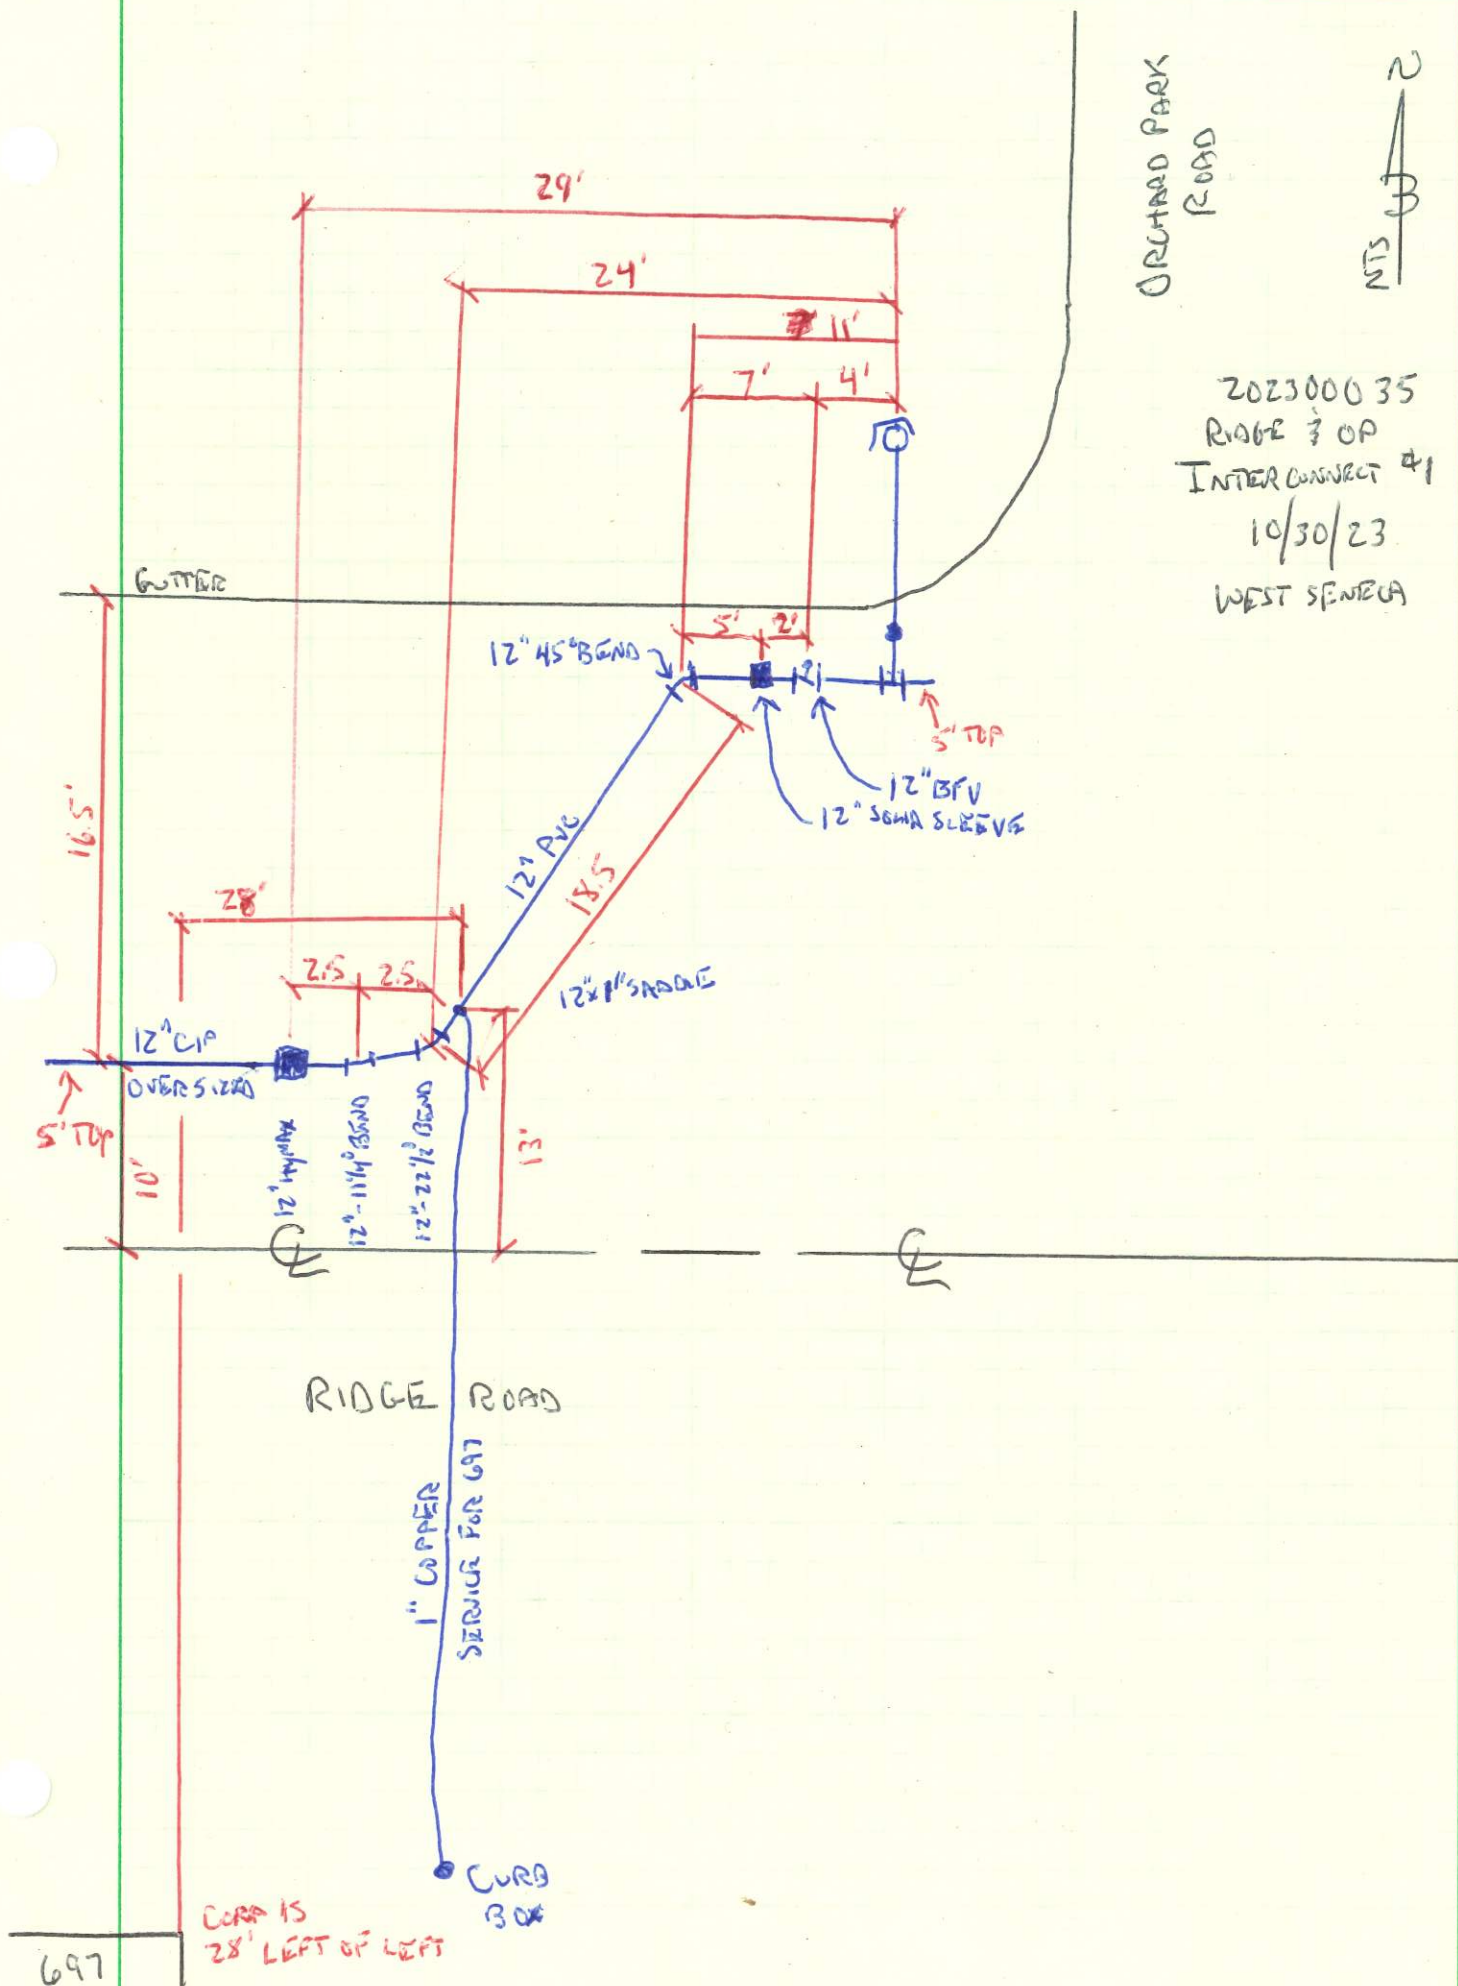 ORCHARD PARK
ROAD
N
NTS
29'
24'
11'
7'
4'
202300035
RIDGE & OP
INTERCONNECT #1
10/30/23
WEST SENECA
GUTTER
5'
2'
12" 45° BEND
5' TOP
12" BFV
12" SLEEVE
16.5'
12" PVC
18.5
28'
2.5
2.5
12"x1" SADDLE
12" CIP
OVERSIZED
5' TOP
10'
12" HYMAX
12"-11 1/4° BEND
12"-22 1/2° BEND
13'
CL
CL
RIDGE ROAD
1" COPPER
SERVICE FOR 697
CURB
BOX
CORP IS
28' LEFT OF LEFT
697